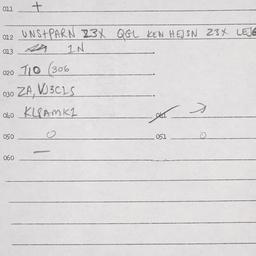 011 +
012 UNS+PARN 23X QGL KEN HEJSN 23X LEJG
013 1N
020 T1O (306
030 ZA, VJ3C1S
040 KLPAMK1 041 →
050 0 051 0
060 —